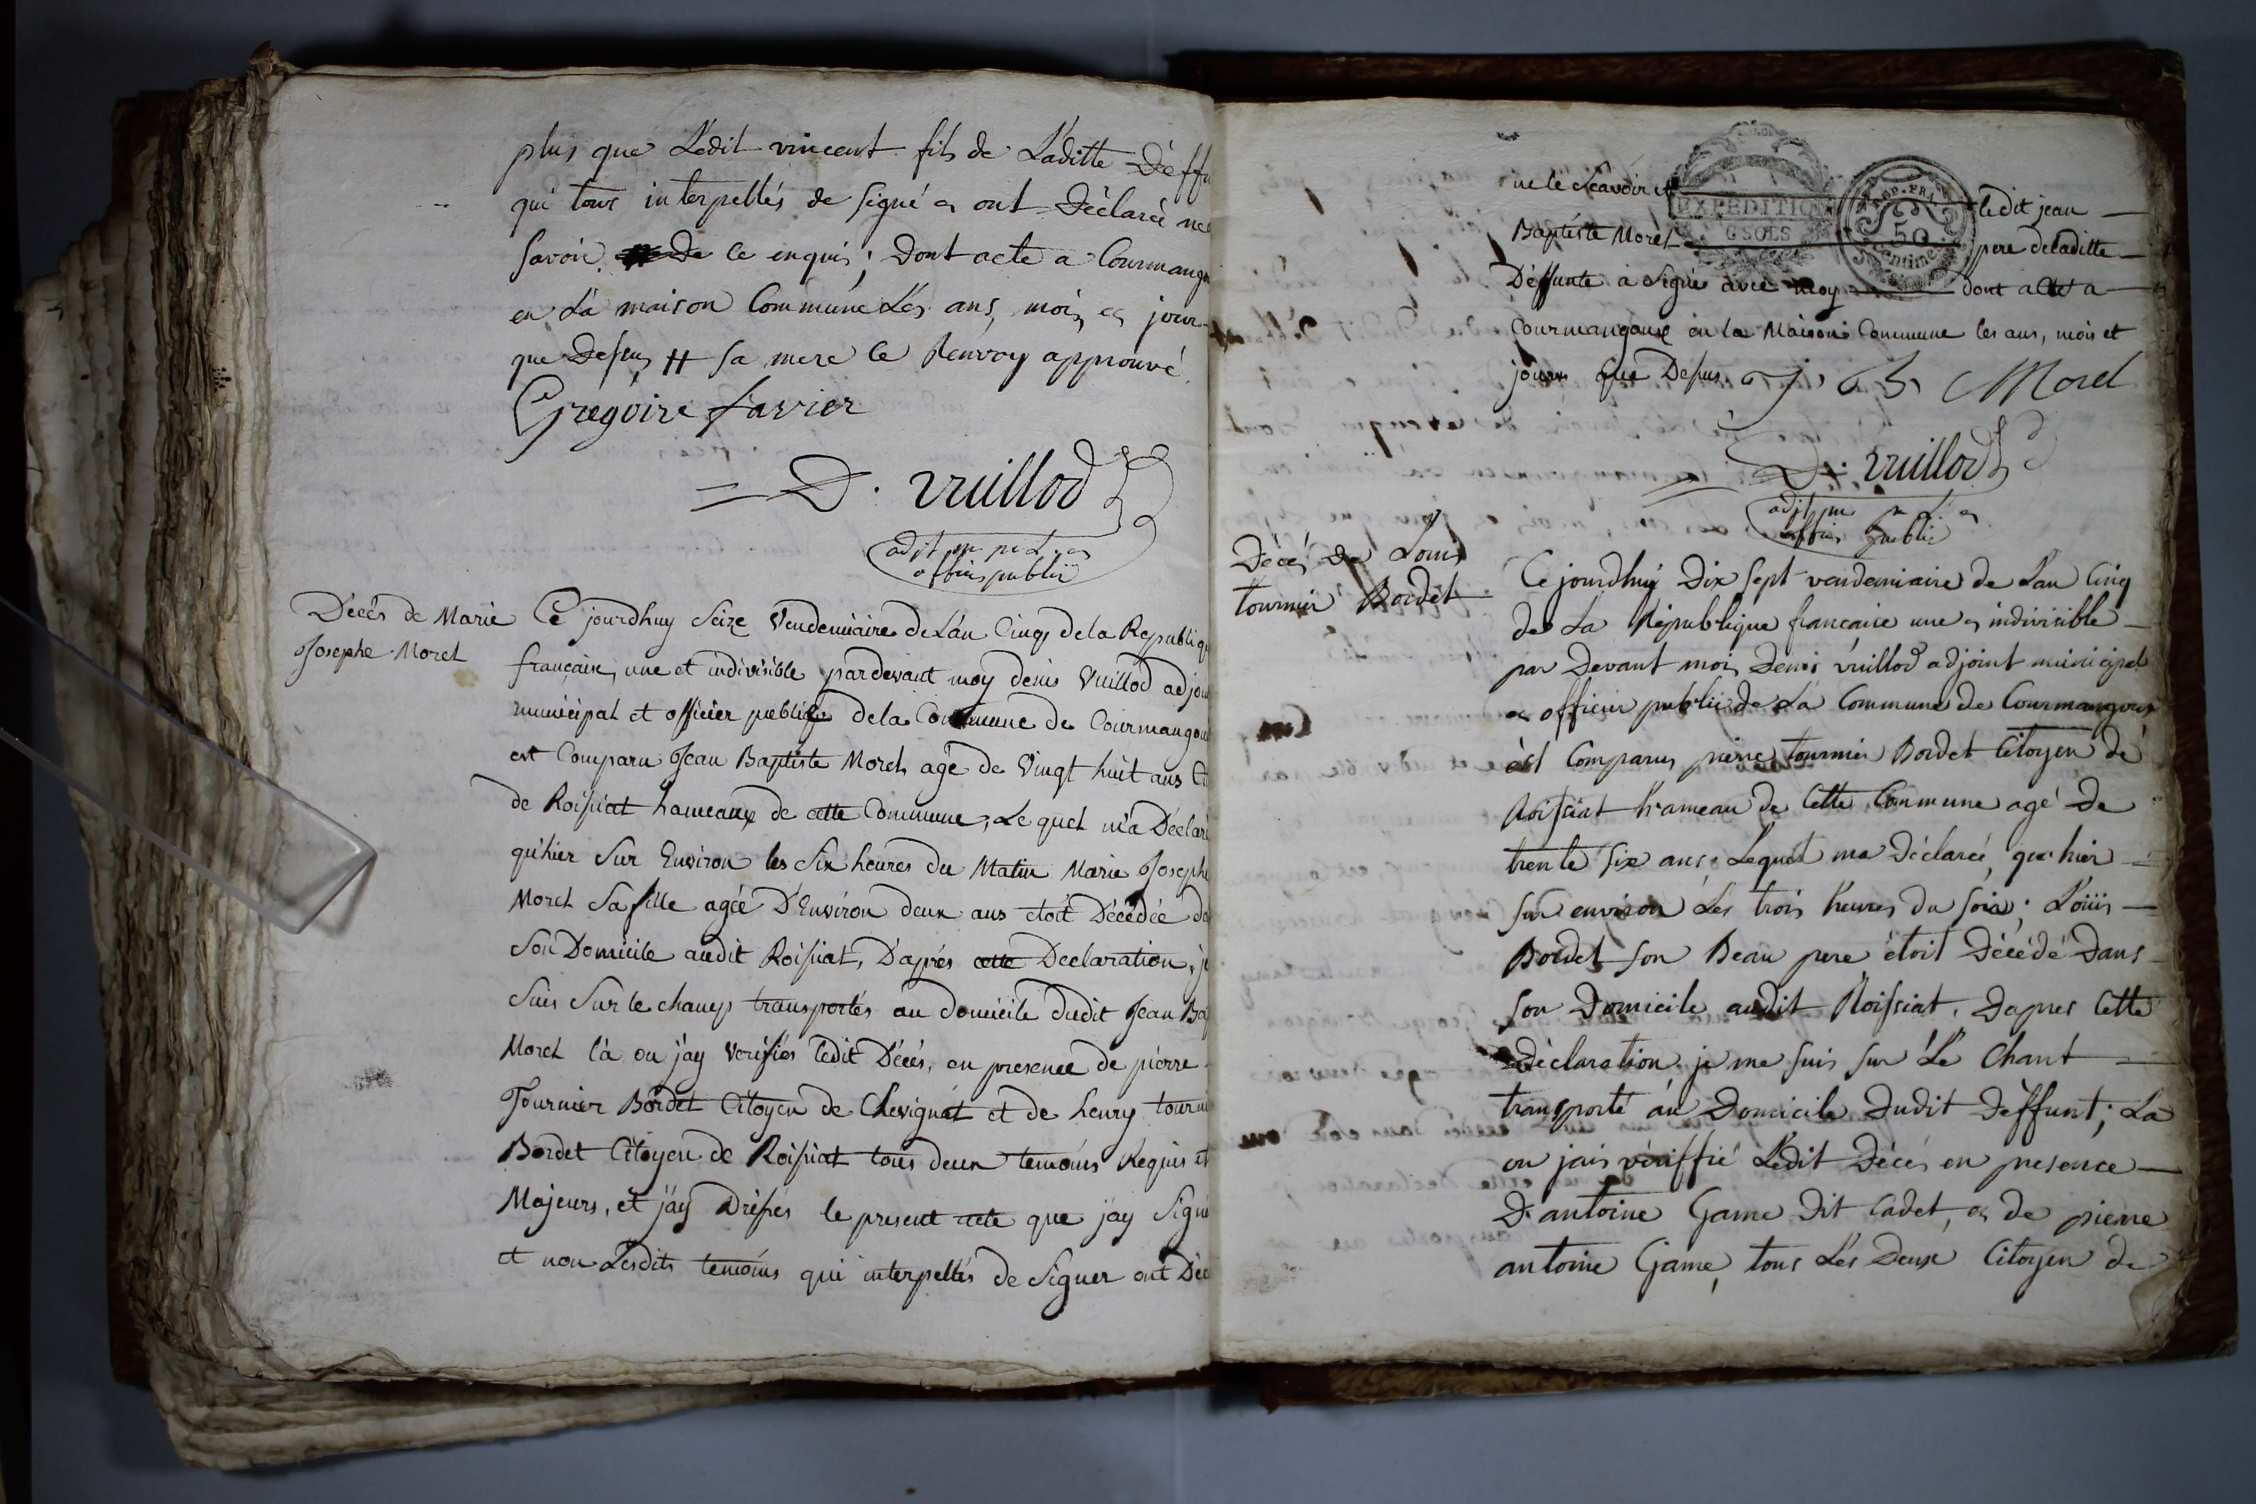 plus que Ledit vincent fils de Laditte Deffu
qui tous interpellés de signé et ont Déclarée ne
savoir De ce enquis; Dont acte a Courmangou
en La maison Commune Les ans, mois et jour
que Desus # sa mere le Renvoy approuvé
Gregoire favier
D. vuillod
adjt m pal et
officier public
Décés de Marie
Josephe Morel
Ce jourdhuy Seize Vendemiaire de L'an Cinq de la Republiqu
française, une et indivisible pardevant moy denis Vuillod adjoin
municipal et officier publique dela Commune de Courmangou
est Comparu Jean Baptiste Morel, agé de Vingt huit ans Ci
de Roissiat hameaux de cette Commune, Le quel m'a Déclaré
qu'hier Sur Environ les Six heures du Matin Marie Josephe
Morel Sa fille agéé D'Environ deux ans étoit Décédée da
Son Domicile audit Roissiat, D'aprés cette Declaration, je
Suis Sur le champ transportés au domicile dudit Jean Bap
Morel là ou j'ay verifiés ledit Décés, en presence de pierre
Tournier Bordet Citoyen de Chevignat et de henry tourni
Bordet Citoyen de Roissiat tous deux temoins Requis et
Majeurs, et j'ay Dréssés le present acte que j'ay Signé
et non Lesdits temoins qui interpellés de Signer ont Déc
ne le Scavoir et ledit jean
EXPEDITION
6 SOLS
REP. FRA
50
centimes
Baptiste Morel pere deladitte
Déffunte à Signé avec moy dont acte a
Courmangoux en la Maison Commune les ans, mois et
jours que Desus J. B. Morel
D. vuillod
adjt m pal et
officier public
Décés de Louis
tournier Bordet
Ce jourdhuy Dix sept vendemiaire de L'an Cinq
de La République française une et indivisible
par Devant moi Denis vuillod adjoint municipal
et officier public de La Commune de Courmangoux
est Comparus pierre tournier Bordet Citoyen de
Roissiat hameau de Cette Commune agé de
trente six ans; Lequel ma Déclarée, que hier
sur environ Les trois heures du soir; Loüis
Bordet son Beau pere étoit Décédé Dans
son Domicile audit Roissiat. Dapres Cette
Déclaration je me suis sur Le Chant
transporté au Domicile Dudit Déffunt; La
ou jais vériffié Ledit Décés en presence
D'antoine Game Dit Cadet, et de pierre
antoine Game, tous Les Deux Citoyen de